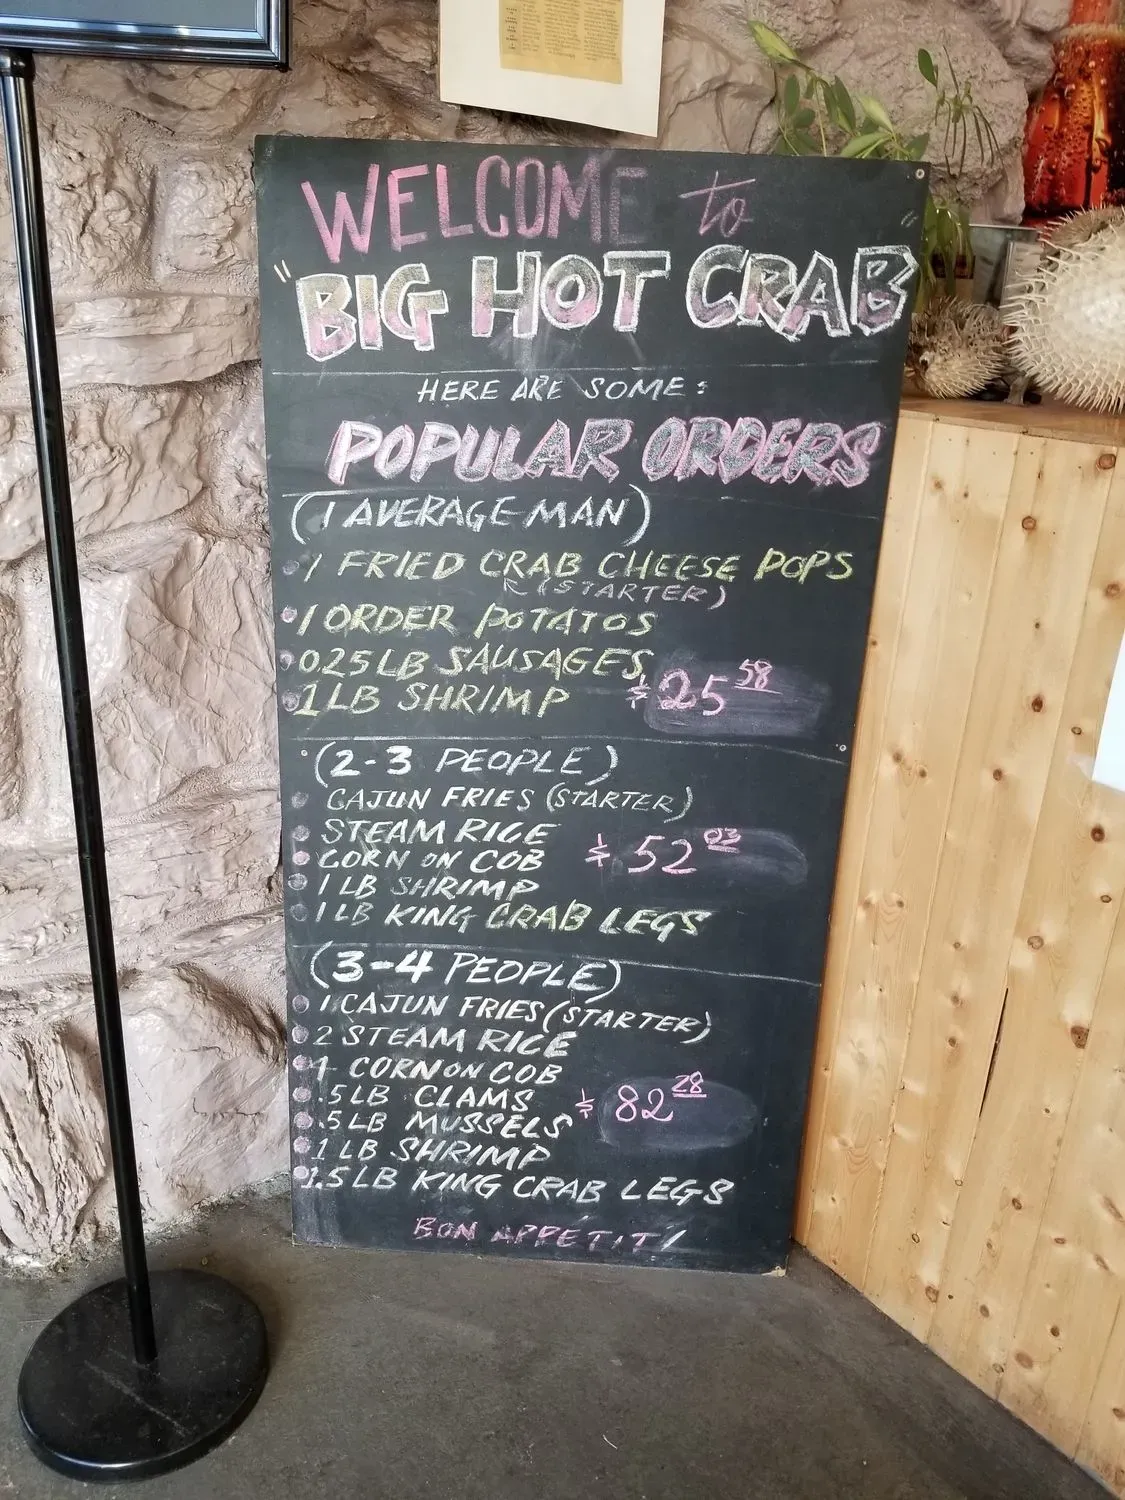 WELCOME to
"BIG HOT CRAB"
HERE ARE SOME:
POPULAR ORDERS
(1 AVERAGE MAN)
1 FRIED CRAB CHEESE POPS
(STARTER)
1 ORDER POTATOS
025LB SAUSAGES
1LB SHRIMP $25 58
(2-3 PEOPLE)
CAJUN FRIES (STARTER)
STEAM RICE
CORN ON COB $52 03
1 LB SHRIMP
1 LB KING CRAB LEGS
(3-4 PEOPLE)
1 CAJUN FRIES (STARTER)
2 STEAM RICE
CORN ON COB
.5LB CLAMS $82 28
.5LB MUSSELS
1 LB SHRIMP
1.5LB KING CRAB LEGS
BON APPÉTIT!